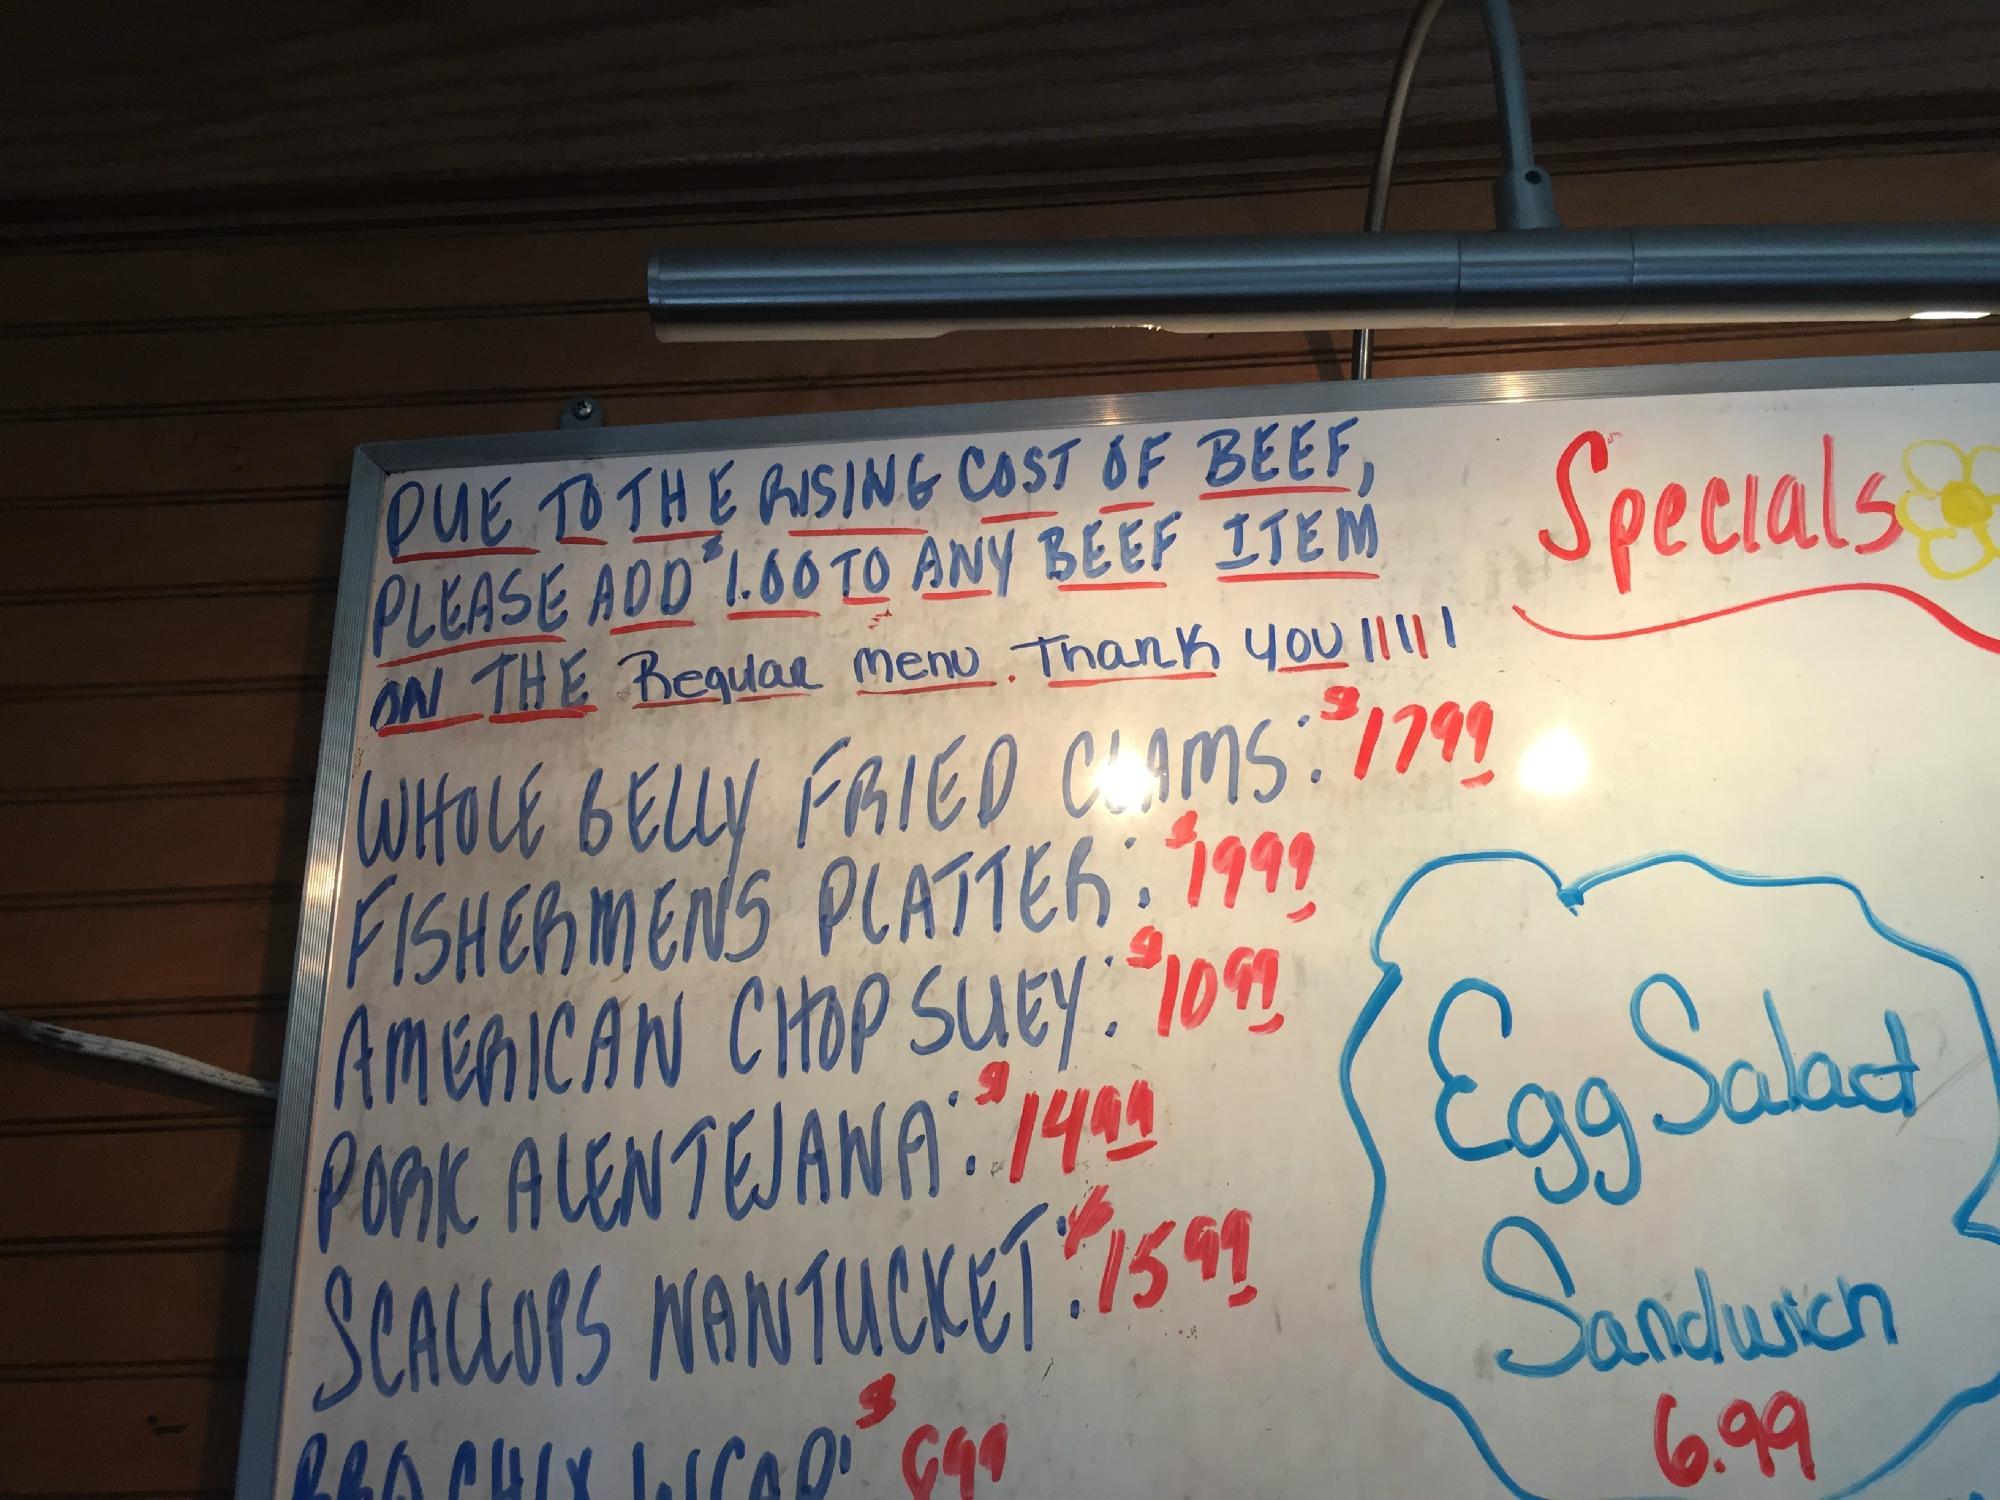 DUE TO THE RISING COST OF BEEF,
PLEASE ADD $1.00 TO ANY BEEF ITEM
ON THE Regular menu. Thank you !!!!!
WHOLE BELLY FRIED CLAMS: $17 99
FISHERMENS PLATTER: $19 99
AMERICAN CHOP SUEY: $10 99
PORK ALENTEJANA: $14 99
SCALLOPS NANTUCKET: $15 99
BBQ CHIX WRAP: $6 99
Specials
Egg Salad
Sandwich
6.99